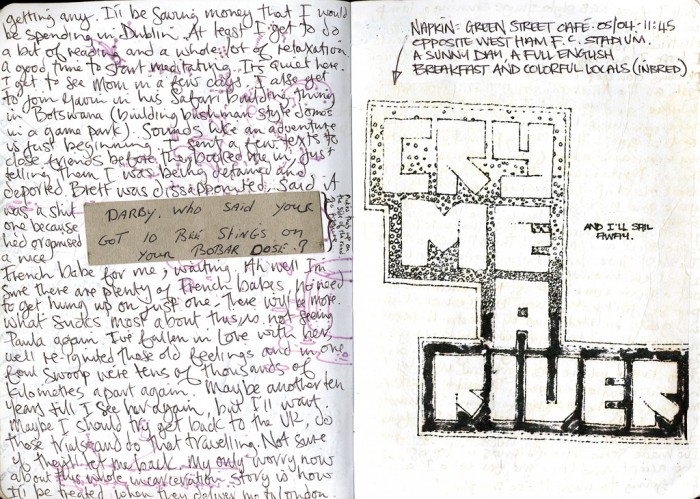 getting any. I'll be saving money that I would
be spending in Dublin. At least I get to do
a bit of reading and a whole lot of relaxation
a good time to start meditating. It's quiet here.
I get to see Mom in a few days. I also get
to join Gavin in his Safari building thing
in Botswana (building bushman style domes
in a game park). Sounds like an adventure
is just beginning. I sent a few texts to
close friends before they booked me in, just
telling them I was being detained and
deported. Brett was dissappointed. Said it
was a shit
one because
he'd organised
a nice
DARBY. WHO SAID YOUR
GOT 10 BEE STINGS ON
YOUR BOBAR DOSE.?
French babe for me, waiting. Ah well I'm
sure there are plenty of French babes, no need
to get hung up on just one. There will be more.
What sucks most about this is not seeing
Paula again. I've fallen in Love with her
well re-ignited those old feelings and in one
foul swoop we're tens of thousands of
kilometres apart again. Maybe another ten
years till I see her again, but I'll wait.
Maybe I should try get back to the UK, do
those trials and do that travelling. Not sure
if they'll let me back. My only worry now
about this whole incarceration story is how
I'll be treated when they deliver me to London.
NAPKIN: GREEN STREET CAFÉ. 05/04 - 11:45
OPPOSITE WEST HAM F.C. STADIUM.
A SUNNY DAY, A FULL ENGLISH
BREAKFAST AND COLORFUL LOCALS (INBRED)
CRY
ME
A
RIVER
AND I'LL SAIL
AWAY.